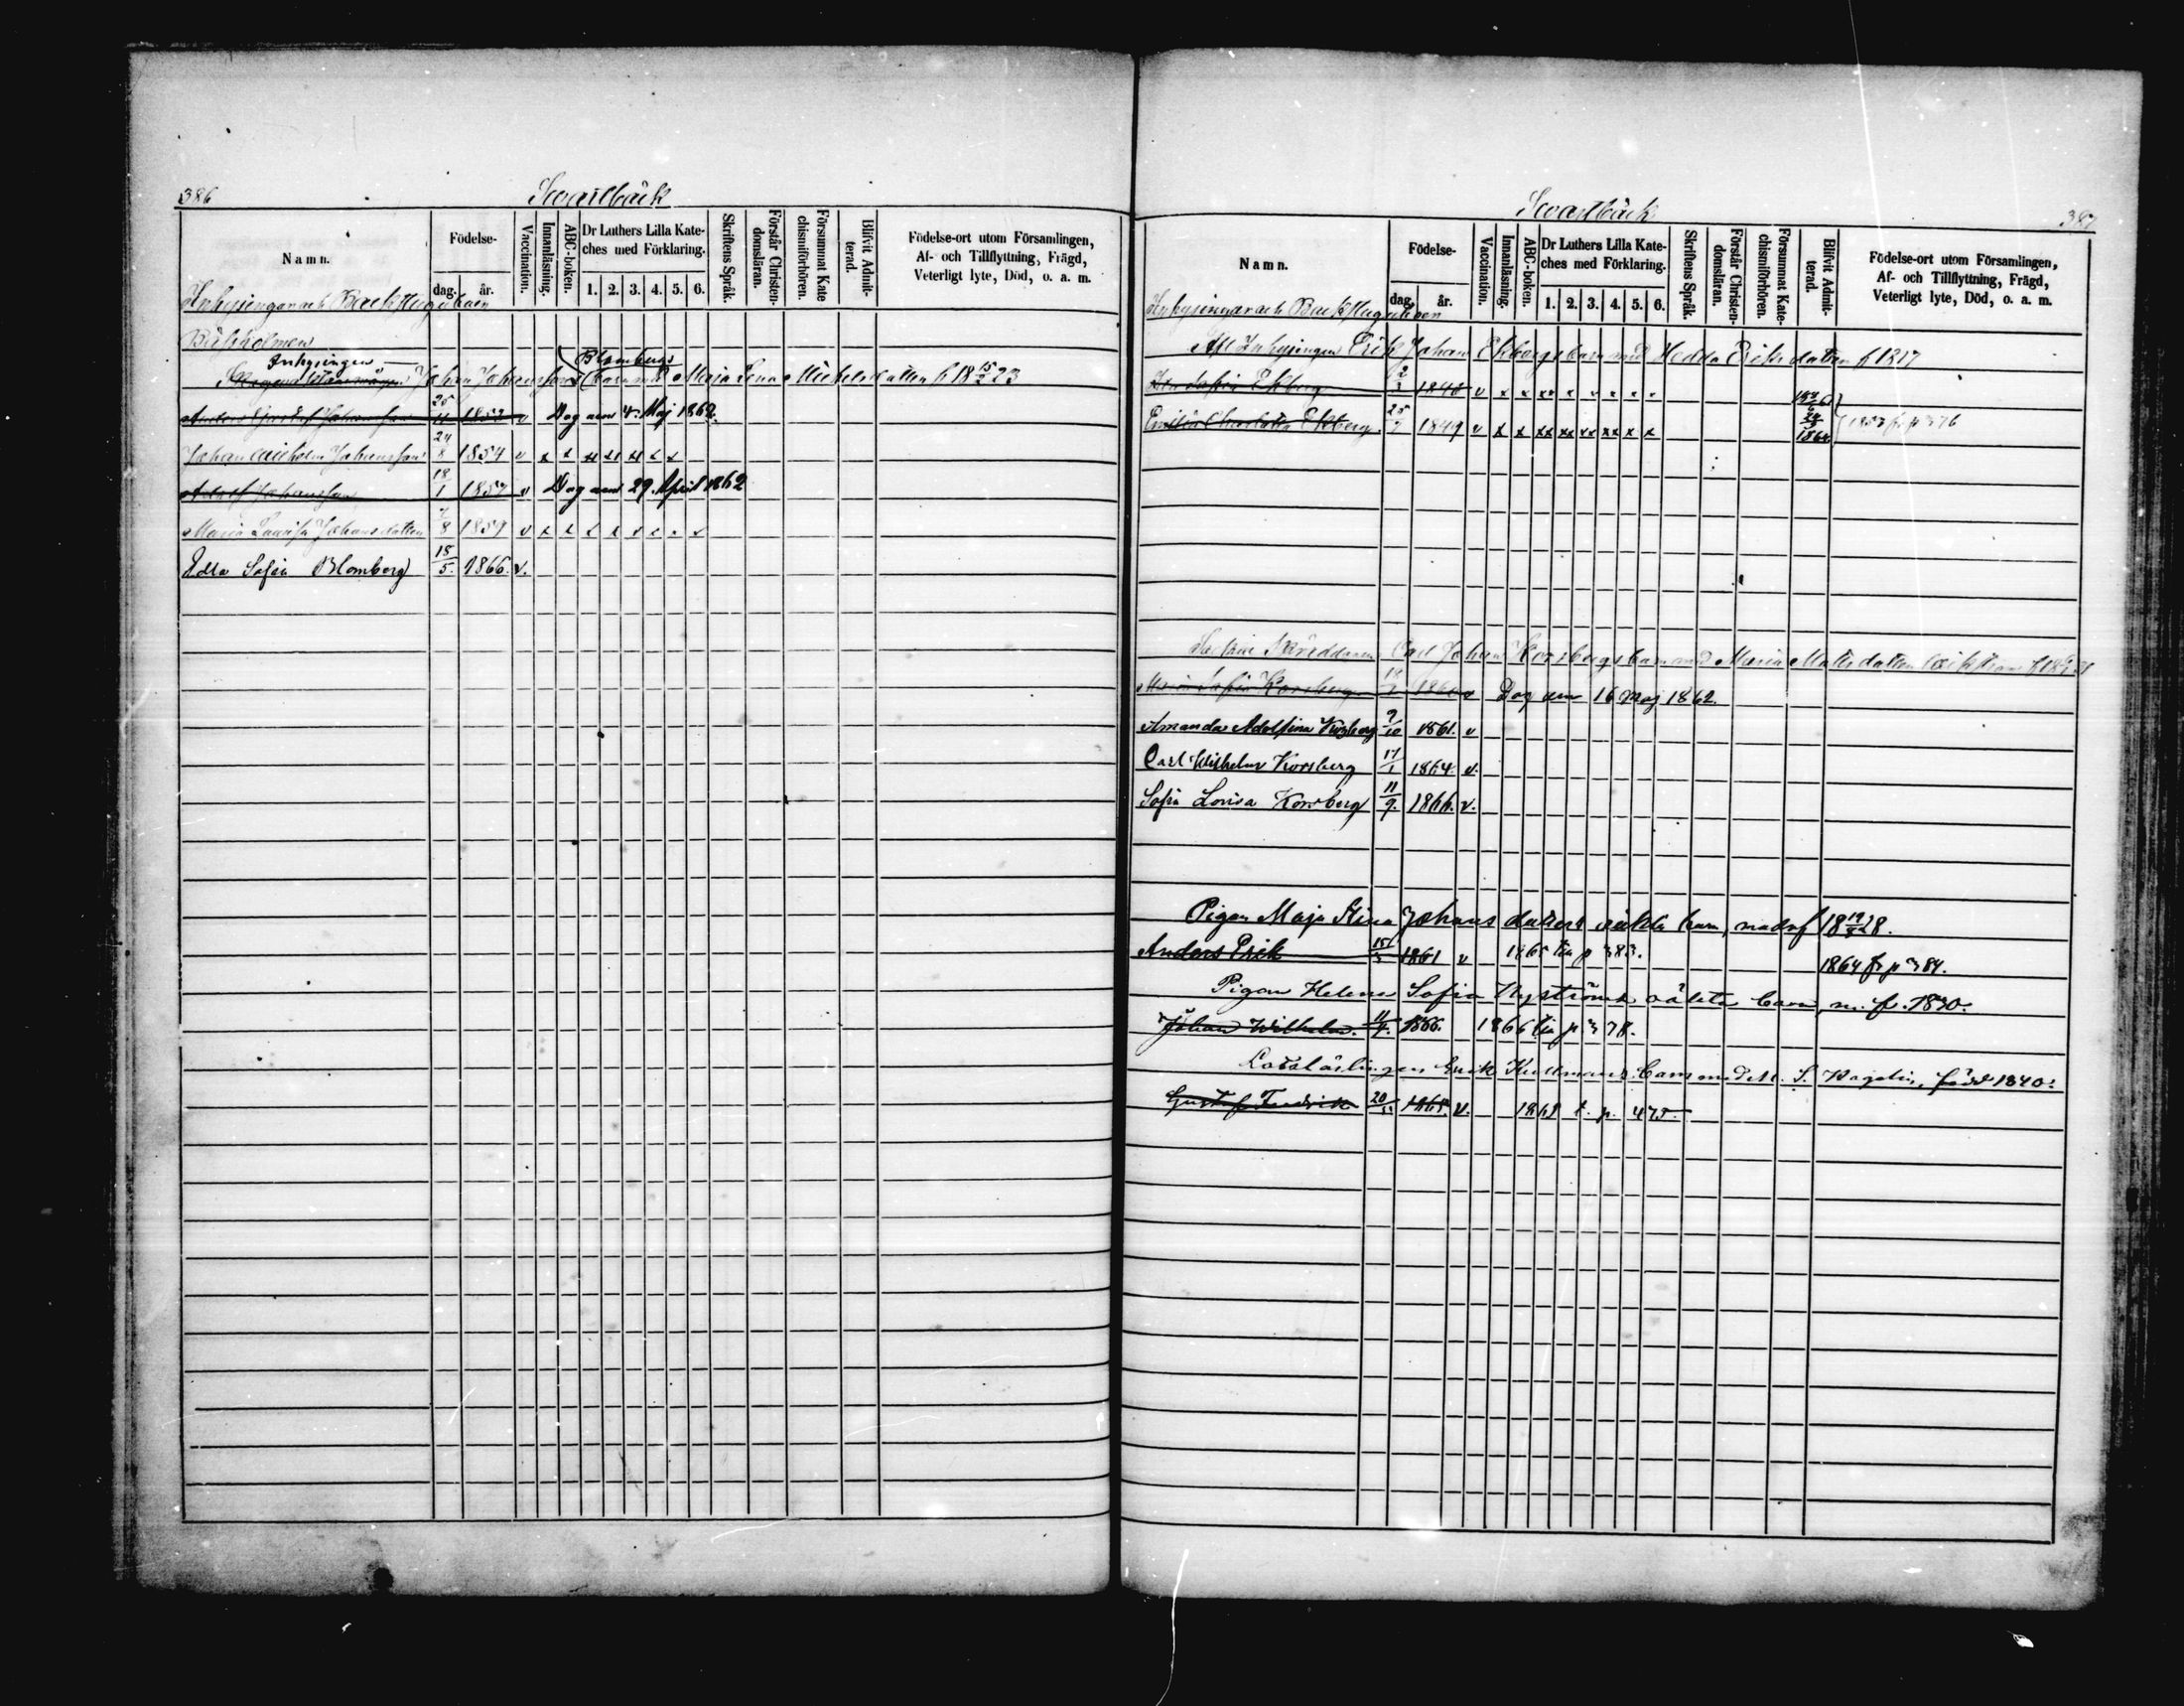 386
Svartbäck
Namn.
Födelse-
dag.
år.
Vaccination.
Innanläsning.
ABC-boken.
Dr Luthers Lilla Kate-
ches med Förklaring.
1. 2. 3. 4. 5. 6.
Skriftens Språk.
Förstår Christen-
domsläran.
Försummat Kate
chismiförhören.
Blifvit Admit-
terad.
Födelse-ort utom Församlingen,
Af- och Tillflyttning, Frägd,
Veterligt lyte, Död, o. a. m.
Inhysingar och Backstugukarn
Björkholmen
Inhysingen Blombergs
Johan Johanssons barn med Maja Lena Michelsdotter f 18 15/2 23
Anders Gustaf Johansson 25/11 1852 v Dog den 4 Maj 1862.
Johan Wilhelm Johansson 24/8 1854 v x x xx xx xx x x
Adolf Johansson 18/1 1857 v Dog den 29 April 1862
Maria Lovisa Johansdotter 7/8 1859 v x x x x x x x x
Edla Sofia Blomberg 18/5. 1866. v.
387
Svartbäck
Namn.
Födelse-
dag.
år.
Vaccination.
Innanläsning.
ABC-boken.
Dr Luthers Lilla Kate-
ches med Förklaring.
1. 2. 3. 4. 5. 6.
Skriftens Språk.
Förstår Christen-
domsläran.
Försummat Kate-
chismiförhören.
Blifvit Admit-
terad.
Födelse-ort utom Församlingen,
Af- och Tillflyttning, Frägd,
Veterligt lyte, Död, o. a. m.
Inhysingar och Backstugukarn
Afl Inhysingen Erik Johan Ekbergs barn med Hedda Eriksdotter f 1817
Sofia Ekberg 2 184 v x x xx x x x x x
Emilia Charlotta Ekberg 25/7 1849 v x x xx xx xx xx x x 1864 1857 fr p 376
Carl Johan Korsbergs barn med Maria Mattsdotter
Maria Sofia Korsberg 18 1860 v Dog den 16 Maj 1862.
Amanda Adolfina Korsberg 9/10 1861. v
Carl Wilhelm Korsberg 17/1 1864. v.
Sofia Lovisa Korsberg 11/9. 1866. v.
Pigan Maja Stina Johansdotters oäkta barn, modr f 18 19/5 28.
Anders Erik 15/3 1861 v 1865 till p 383. 1864 fr p 384.
Pigan Helena Sofia Nyströms oäkta barn, m. f. 1830.
Johan Wilhelm. 11/4. 1866. 1866 till p 378.
Lotslärlingen Erik Kullmans barn med S. Wagelin, född 1840:
Gustaf Fredrik 20/11 1868. v. 1869 t. p. 475.